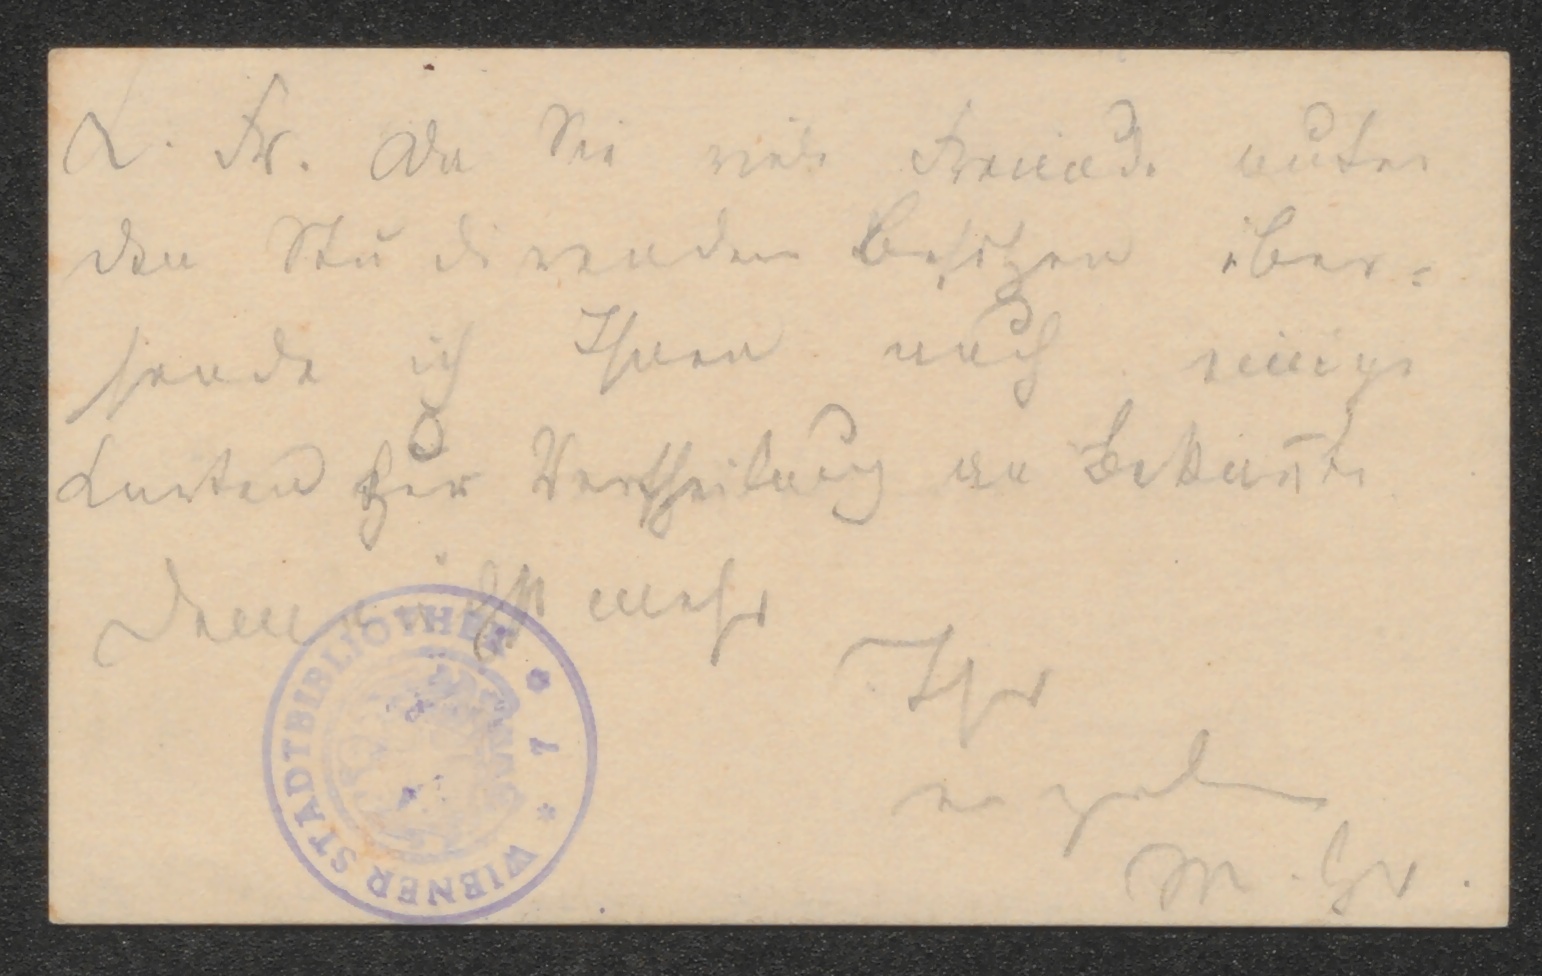 L. Fr. Da Sie viele Freunde unter
den Studirenden besitzen über-
sende ich Ihnen noch einige
Karten zur Vertheilung an Bekante
mehr
Ihr
ergeben
M. Gr.
WIENER STADTBIBLIOTHEK * 7 *